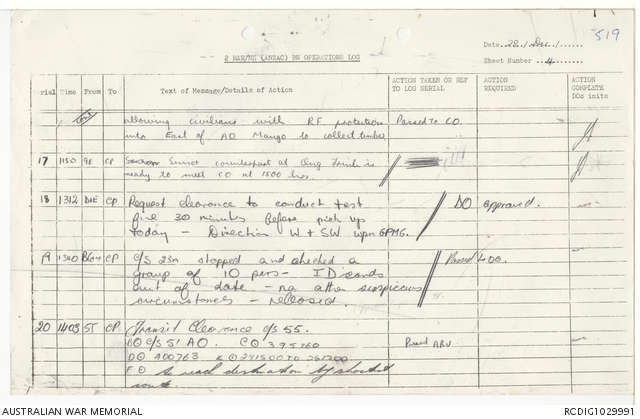 519
Date 28/Dec/
Sheet Number 4
2 RAR/NZ (ANZAC) BN OPERATIONS LOG
Serial Time From To Text of Message/Details of Action ACTION TAKEN OR REF TO LOG SERIAL ACTION REQUIRED ACTION COMPLETE DOs inits
allowing civilians with R.F. protection Passed to CO.
into East of AO Mango to collect timber
17 1150 CP Sunset counterpart at Ong Trinh is
ready to meet CO at 1500 hrs.
18 1312 CP Request clearance to conduct test DO approved.
fire 30 minutes before pick up
today - Direction W + SW wpn GPMG.
19 1340 CP C/S 23A stopped and checked a Passed LOO.
group of 10 pers - ID cards
out of date - no other suspicious
circumstances - released.
20 1403 5T CP Transit Clearance c/s 55.
C/S 51 AO. CO 395760 Passed ARU
DO 400763
FO to reach destination by shortest
route.
AUSTRALIAN WAR MEMORIAL
RCDIG1029991